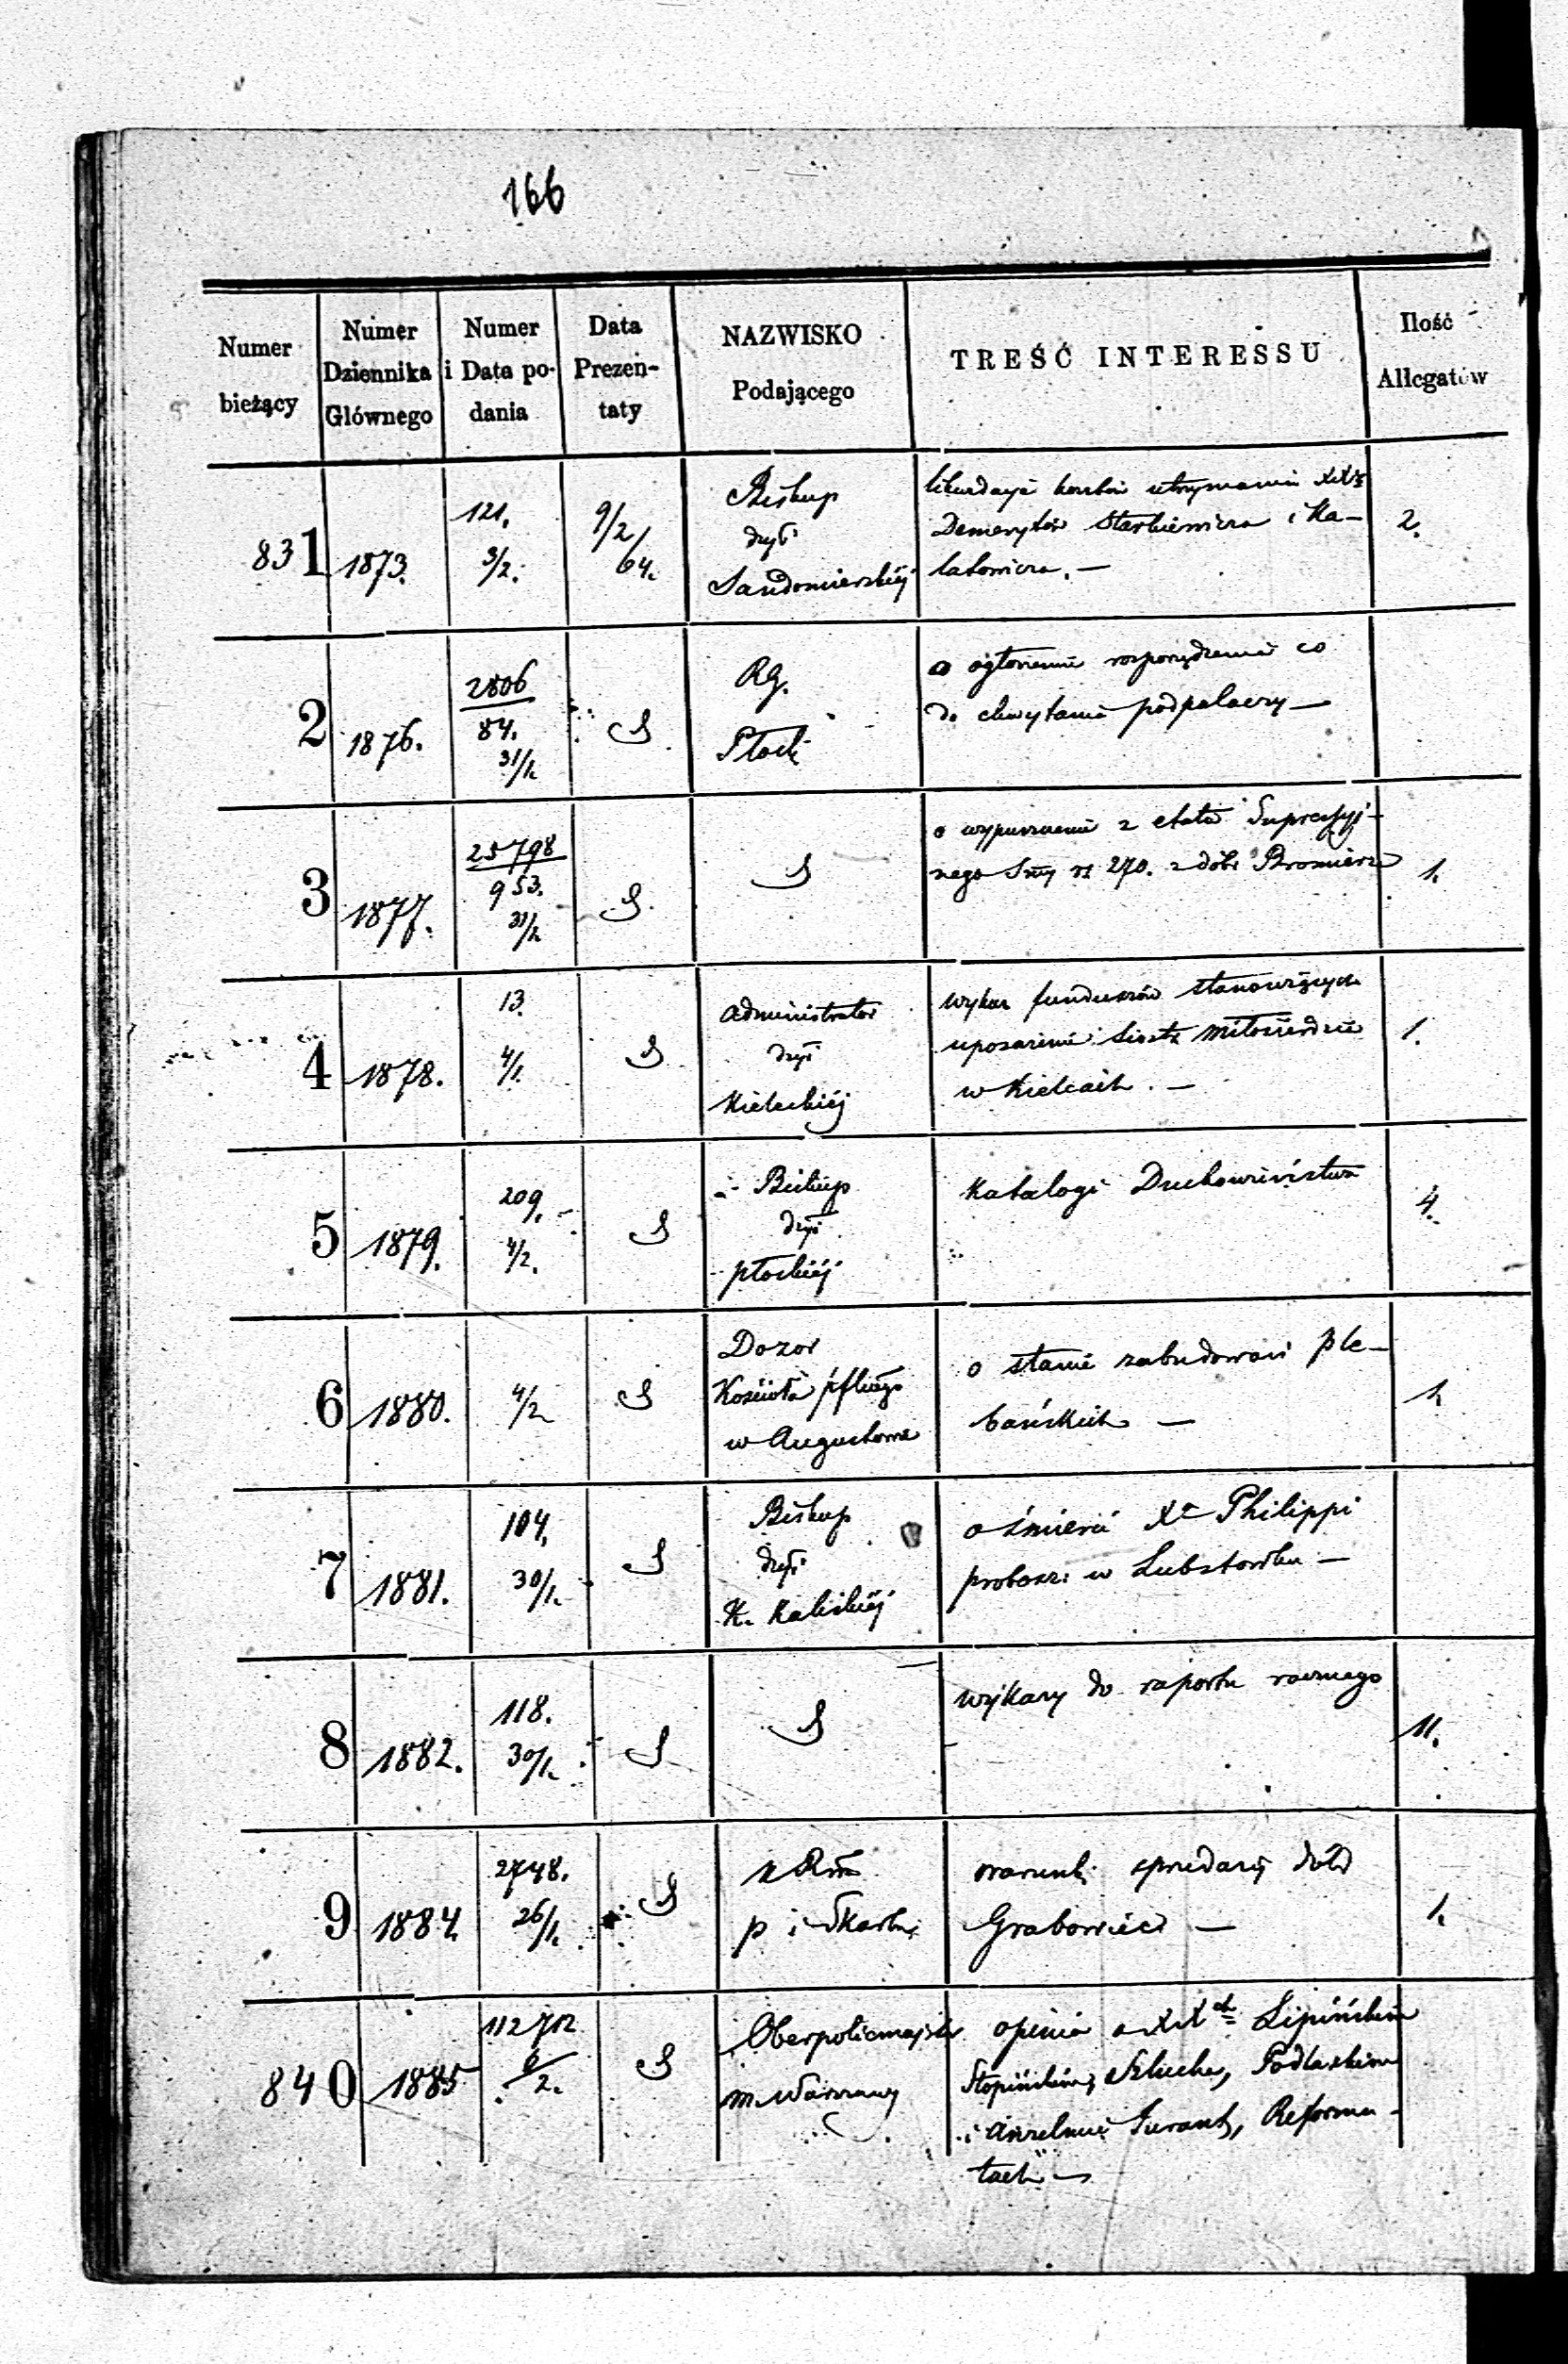 166
Numer bieżący
Numer Dziennika Głównego
Numer i Data podania
Data Prezentaty
NAZWISKO Podającego
TREŚĆ INTERESSU
Ilość Allegatów
831
1873.
121.
3/2.
9/2/64.
Biskup
dyci
Sandomierskiéj
likwidacyą kosztów utrzymania XX
Demerytów Starkiewicza i Ka-
łatowicza. —
2.
2
1876.
2806
84.
31/1.
S
RG.
Płock
o ogłoszenie rozporządzenia co
do chwytania podpalaczy —
3
1877.
25798
953.
31/1.
S
S
o wypuszczenie z etatu Supressyj-
nego Smy rs 270. z dóbr Bromierz
1.
4
1878.
13.
4/1.
S
Administrator
dyi
Kieleckiéj
wykaz funduszów stanowiących
uposażenie Sióstr Miłosierdzia
w Kielcach. —
1.
5
1879.
209.
4/2.
S
Biskup
dyi
płockiéj
Katalogi Duchowieństwa
4.
6
1880.
4/2
S
Dozor
Kościoła pflnego
w Augustowie
o stanie zabudowań ple-
bańskich —
1.
7
1881.
104.
30/1.
S
Biskup
dyi
K. Kaliskiéj
o śmierci Xa Philippi
probosz: w Lubstówku —
8
1882.
118.
30/1.
S
S
wykazy do raportu rocznego
11.
9
1884.
2748.
26/1.
S
p i Skarbu
warunki sprzedaży dóbr
Grabowiec —
1.
840
1885
112712
6/2.
S
Oberpolicmajster
m. Warszawy
opinia o XXch Lipińskim
Stopińskim, Szluche, Podlaskim
i Anzelmie Gurant, Reforma-
tach —